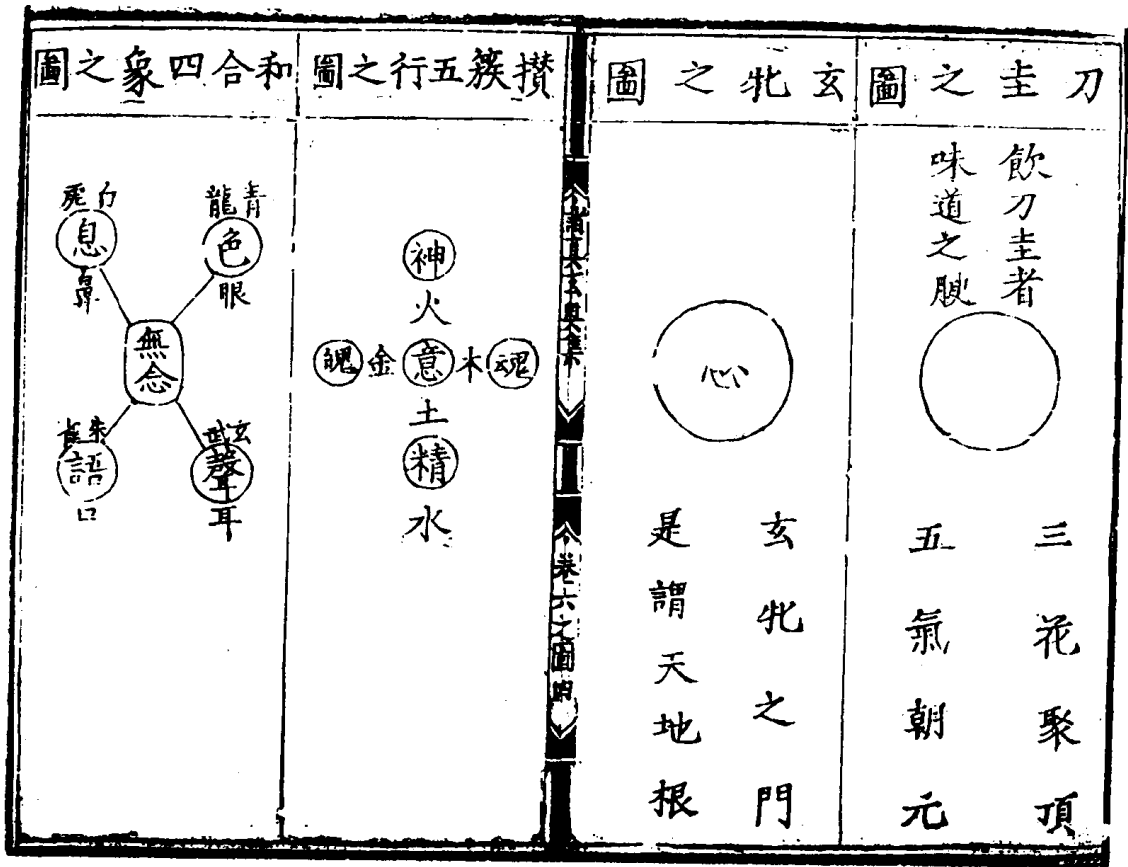 刀圭之圖
飲刀圭者
味道之腴
三花聚頂
五氣朝元
玄牝之圖
心
玄牝之門
是謂天地根
卷六之圖
攢簇五行之圖
神
火
魂木意金魄
土
精
水
和合四象之圖
青龍
色
眼
白虎
息
鼻
無念
玄武
聲
耳
朱雀
語
口